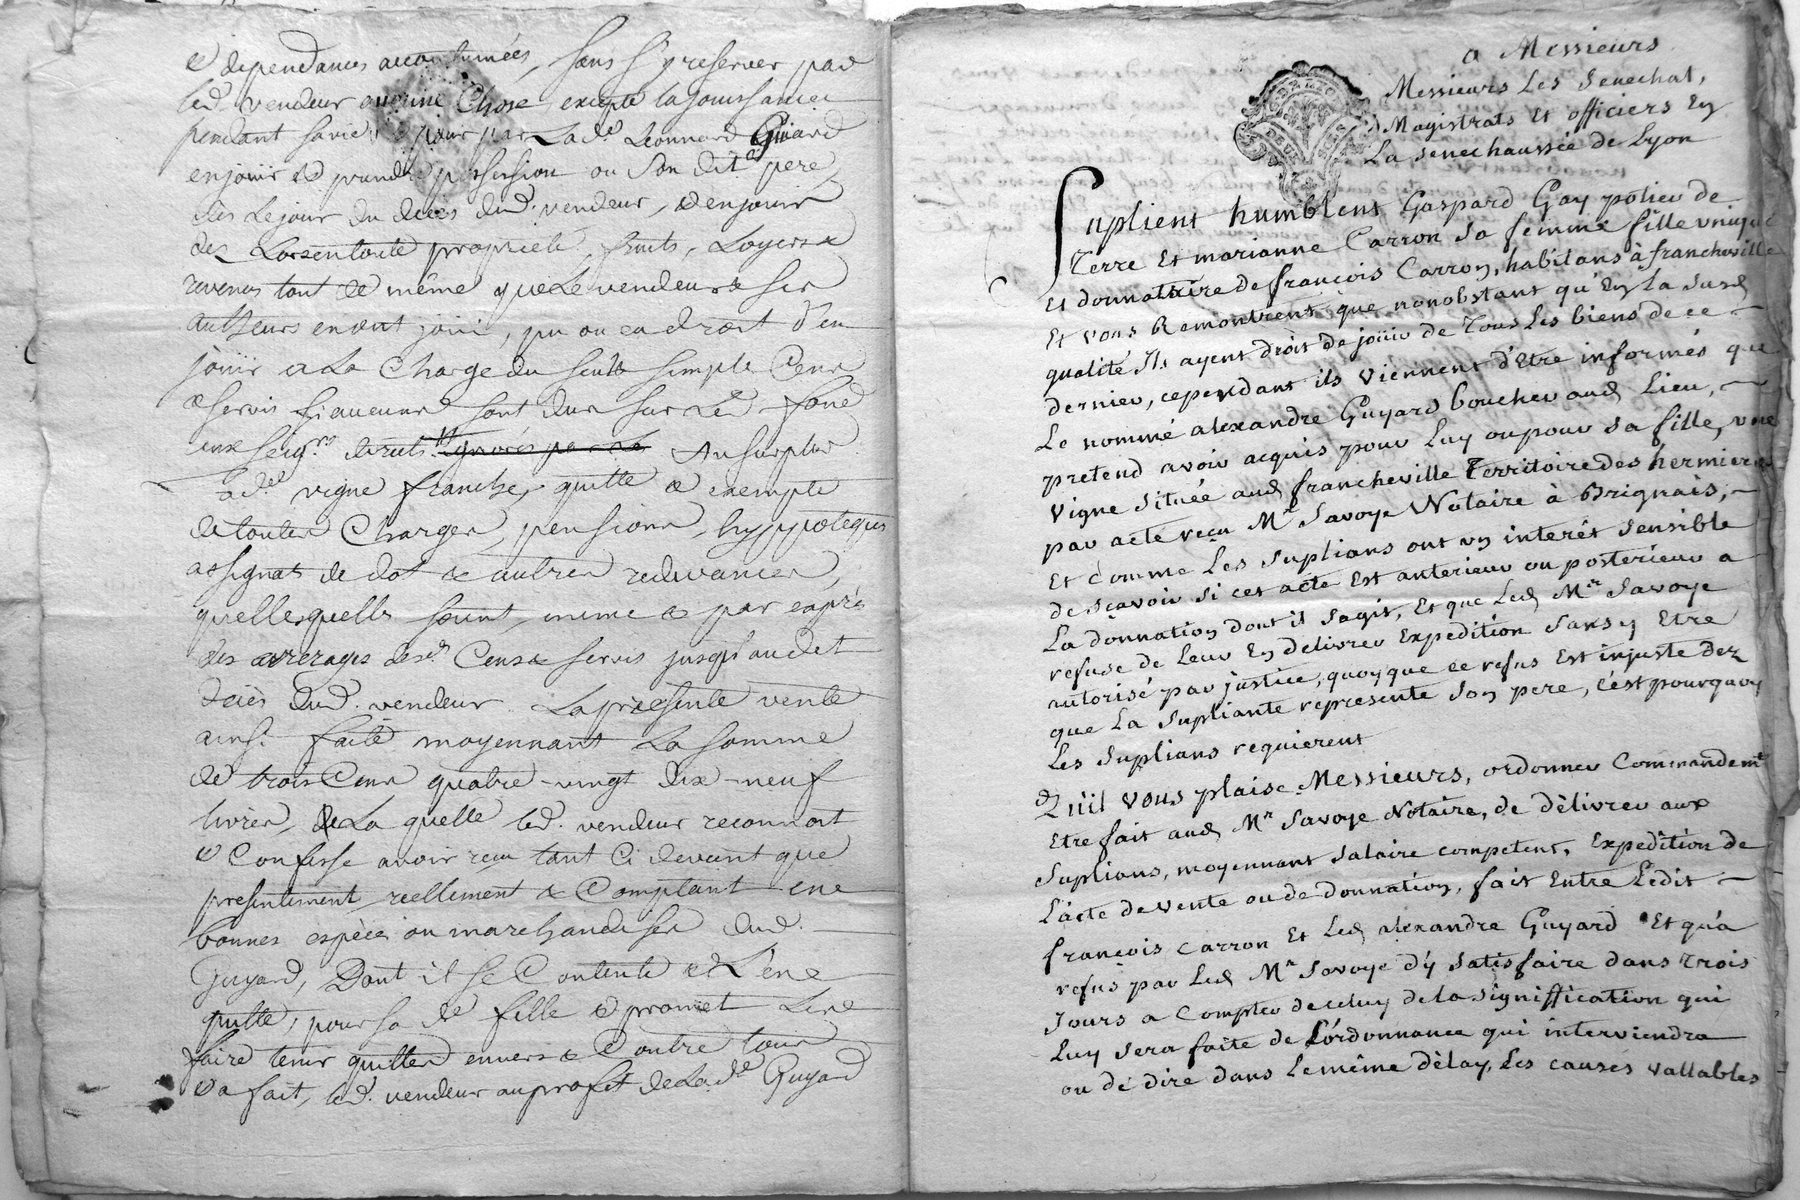 & dependances accoutumées, sans s'y reserver par
led. vendeur aucune Chose, excepté la jouissance
pendant sa vie, pour par Lad.e Leonnard Guiard
en jouir & prendre possession ou son dit pere
dès Le jour du decès dud. vendeur, & en jouir
dez Lors en toute propriété, fruits, Loyers &
revenus tout de même que Le vendeur & ses
autheurs en ont joui, pu ou eu droit d'en
jouir a La Charge du seul & simple Cens
& servis si aucuns sont dus sur led. fond
aux seig.rs directs ignorés par Au surplus
lad.e vigne franche, quitte & exempte
de toutes Charges, pensions, hyppoteques
assignats de dot & autres redevances,
quelles quelles soient, meme & par exprès
des arrerages desd. Cens & servis jusqu'audit
décès dud. vendeur La presente vente
ainsi faite moyennant La somme
de trois Cens quatre-vingt dix-neuf
livres, de La quelle led. vendeur reconnoit
& Confesse avoir reçu tant Ci devant que
presentement reellement & Comptant en
bonnes espèces ou marchandises dud.
Guyard, Dont il se Contente et L'en
quitte, pour sa d.e fille & promet L'en
faire tenir quitte envers & Contre tous
& a fait, led. vendeur au profit de La d.e Guyard
a Messieurs
Messieurs Les Senechal,
Magistrats et officiers En
La Senechaussée de Lyon
Suplient humblent Gaspard Gay polieu de
Terre Et marianne Carron sa femme fille unique
Et donnataire de françois Carron, habitans à francheville
Et vous Remontrent que nonobstant qu'En La susd
qualité Ils ayent droit de joüir de Tous Les biens de ce
dernier, cependant ils Viennent d'Etre informés que
Le nommé alexandre Guyard boucher aud Lieu,
pretend avoir acquis pour Luy ou pour sa fille, une
Vigne située aud francheville Territoire des hermieres
par acte reçu Mr Savoye Notaire à Brignais,
Et Comme Les Suplians ont un interêt sensible
de sçavoir si cet acte Est anterieur ou posterieur a
La donnation dont il sagit, Et que Led Mr Savoye
refuse de Leur En delivrer Expedition sans y Etre
autorisé par justice, quoy que ce refus Est injuste dez
que La Supliante represente son pere, c'est pourquoy
Les Suplians requierent
Qu'il vous plaise Messieurs, ordonner Commandemt
Etre fait aud Mr Savoye Notaire, de délivrer aux
Suplians, moyennant salaire competent, Expedition de
L'acte de vente ou de donnation, fait Entre Ledit
françois Carron Et Led alexandre Guyard Et qu'a
refus par Led Mr Savoye d'y satisfaire dans trois
Jours a Compter de celuy de la signiffication qui
Luy sera faite de L'ordonnance qui interviendra
ou de dire dans Le même délay, Les causes vallables